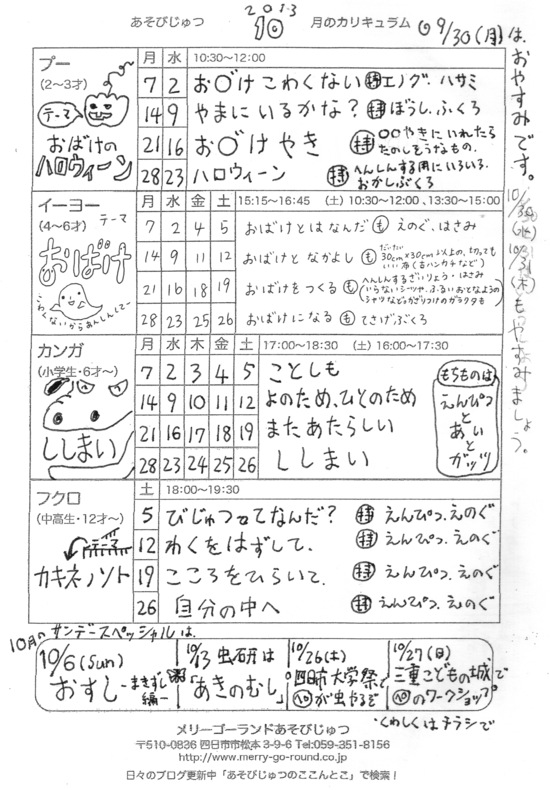 2013
あそびじゅつ 10 月のカリキュラム
◎9/30(月)は、おやすみです。
10/30(水) 10/31(木)もやすみましょう。
プー
(2〜3才)
テーマ
おばけの
ハロウィーン
月 水 10:30〜12:00
7 2 お〇け こわくない 持 エノグ・ハサミ
14 9 やまに いるかな? 持 ぼうし、ふくろ
21 16 お〇け やき 持 〇〇やきにいれたら たのしそうなもの。
28 23 ハロウィーン 持 へんしんする用にいろいろ。 おかしぶくろ
イーヨー
(4〜6才) テーマ
おばけ
こわくないからあんしんしてー
月 水 金 土 15:15〜16:45 (土) 10:30〜12:00、13:30〜15:00
7 2 4 5 おばけとはなんだ も えのぐ、はさみ
14 9 11 12 おばけと なかよし も だいたい 30cm×30cm以上の、切っても いい布(古ハンカチなど)
21 16 18 19 おばけをつくる も へんしんするざいりょう・はさみ (いらないシーツや、ふるいおとなようの シャツなど)
28 23 25 26 おばけになる も てさげぶくろ
カンガ
(小学生・6才〜)
ししまい
月 水 木 金 土 17:00〜18:30 (土) 16:00〜17:30
7 2 3 4 5 ことしも
14 9 10 11 12 よのため、ひとのため
21 16 17 18 19 またあたらしい
28 23 24 25 26 ししまい
もちものは
えんぴつ
と
あい
と
ガッツ
フクロ
(中高生・12才〜)
テーマ
カキネノソト
土 18:00〜19:30
5 びじゅつってなんだ? 持 えんぴつ、えのぐ
12 わくをはずして、 持 えんぴつ、えのぐ
19 こころをひらいて、 持 えんぴつ、えのぐ
26 自分の中へ 持 えんぴつ、えのぐ
10月の サンデースペッシャルは、
10/6(Sun)
おすし
ーまきずし編ー
10/13 虫研は
「あきのむし」。
10/26(土)
四日市大学祭で
が虫やるぞ
10/27(日)
三重こどもの城で
のワークショップ
・くわしくはチラシで
メリーゴーランドあそびじゅつ
〒510-0836 四日市市松本 3-9-6 Tel:059-351-8156
http://www.merry-go-round.co.jp
日々のブログ更新中「あそびじゅつのここんとこ」で検索！